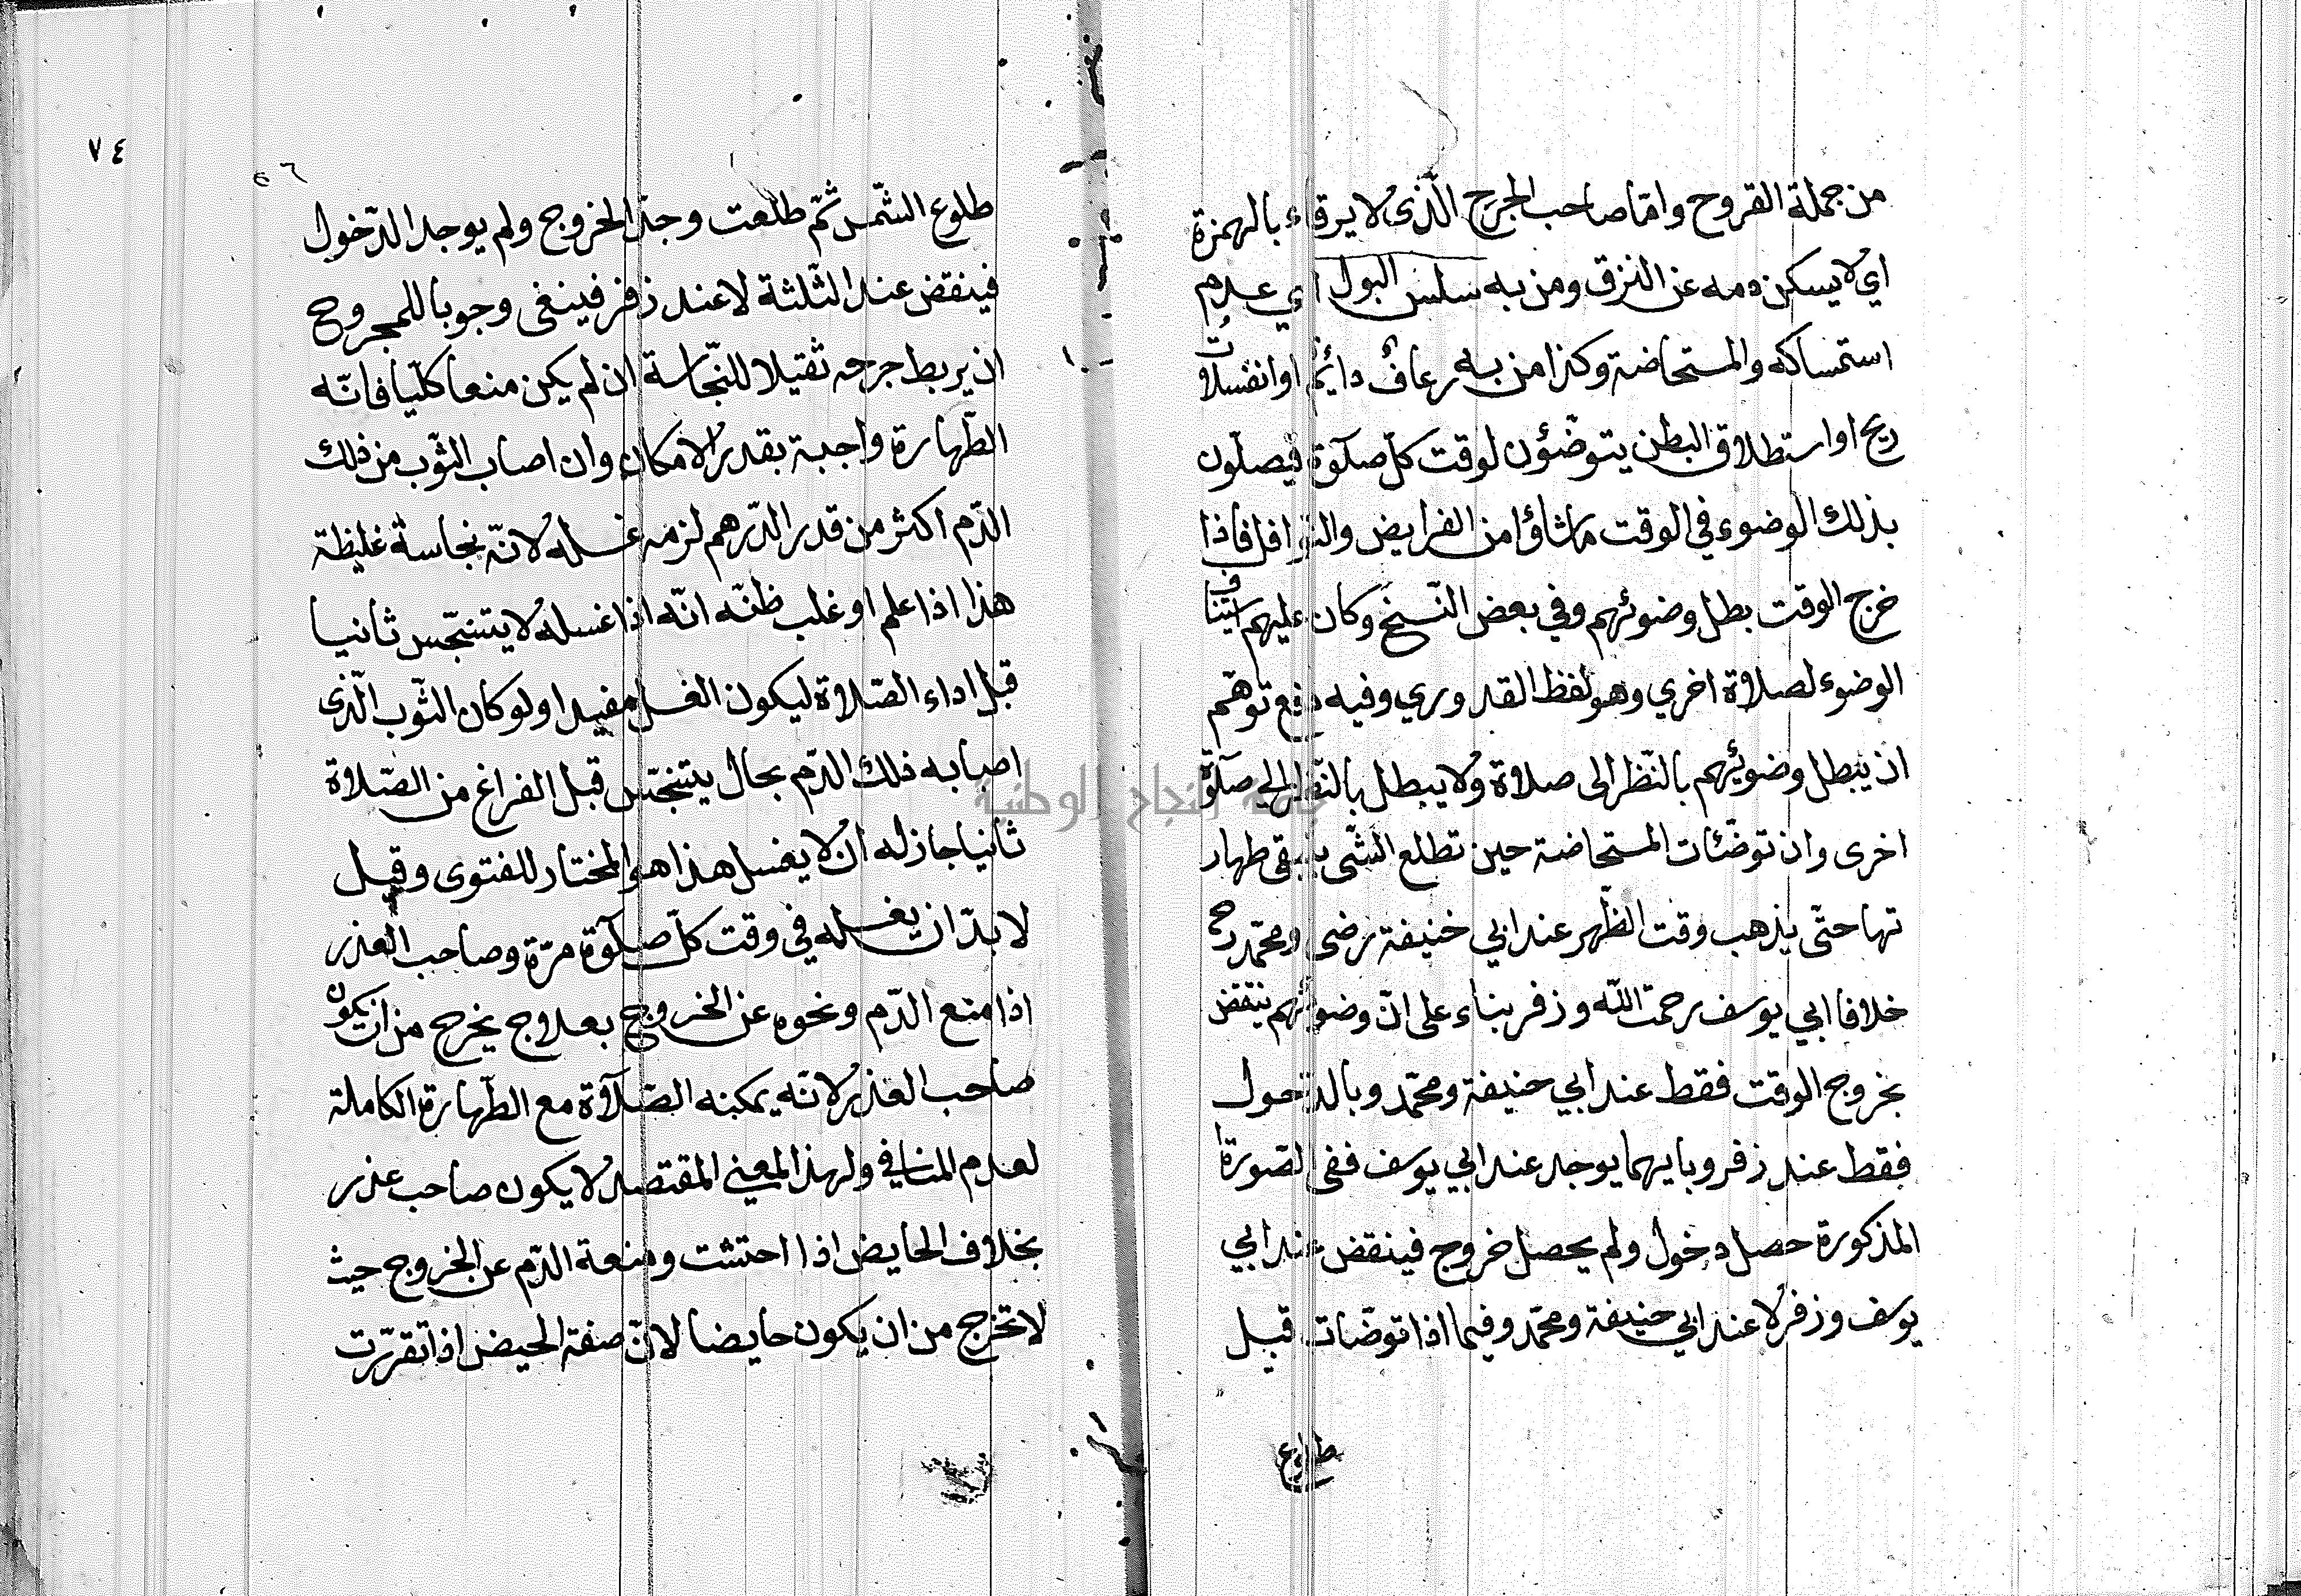 من جملة القروح وامّا صاحب الجرح الّذى لا يرقاء بالهمزة
اي لا يسكن دمه عن النزق ومن به سلس البول اي عدم
استمساكه والمستحاضة وكذا من به رعاف دائم او انفسلات
ريح او استطلاق البطن يتوضّؤن لوقت كلّ صلوة فيصلّون
بذلك الوضوء في الوقت ما شاؤا من الفرايض والنّوافل فاذا
خرج الوقت بطل وضوئهم وفي بعض النّسخ وكان عليهم استيناف
الوضوء لصلاة اخري وهو لفظ القدوري وفيه دفع توهّم
ان يبطل وضوئهم بالنّظر الى صلاة ولا يبطل بالنّظر الي صلوة
اخرى وان توضّئات المستحاضة حين تطلع الشّمس يبقى طهار
تها حتّى يذهب وقت الظّهر عند ابي حنيفة رضى ومحمّد رح
خلافا ابي يوسف رحمة اللّه وزفر بناء على انّ وضوئهم ينتقض
بخروج الوقت فقط عند ابي حنيفة ومحمّد وبالدّخول
فقط عند زفر وبايهما يوجد عند ابي يوسف ففى الصّورة
المذكورة حصل دخول ولم يحصل خروج فينقض عند ابي
يوسف وزفر لا عند ابي حنيفة ومحمّد وفيما اذا توضّات قبل
طلوع
٧٤
طلوع الشّمس ثمّ طلعت وجد الخروج ولم يوجد الدّخول
فينقض عند الثّلثة لا عند زفر فينغى وجوبا للمجروح
ان يربط جرحه ثقيلا للنّجاسة ان لم يكن منعا كلّيا فانّه
الطّهارة واجبة بقدر الامكان وان اصاب الثّوب من ذلك
الدّم اكثر من قدر الدّرهم لزمه غسله لانّه نجاسة غليظة
هذا اذا علم او غلب ظنّه انّه اذا غسله لا يتنجّس ثانيا
قبل اداء الصّلاة ليكون الغسل مفيدا ولو كان الثّوب الّذى
اصابه ذلك الدّم بحال يتنجّس قبل الفراغ من الصّلاة
ثانيا جاز له ان لا يغسل هذا هو المختار للفتوى وقيل
لا بدّ ان يغسله في وقت كلّ صلوة مرّة وصاحب العذر
اذا منع الدّم ونحوه عن الخروج بعلاج يخرج من ان يكون
صاحب العذر لانّه يمكنه الصّلاة مع الطّهارة الكاملة
لعدم المنافي ولهذا المعني المقتصد لا يكون صاحب عذر
بخلاف الحايض اذا احتشت ومنعة الدّم عن الخروج حيث
لا تخرج من ان يكون حايضا لانّ صفة الحيض اذا تقرّرت